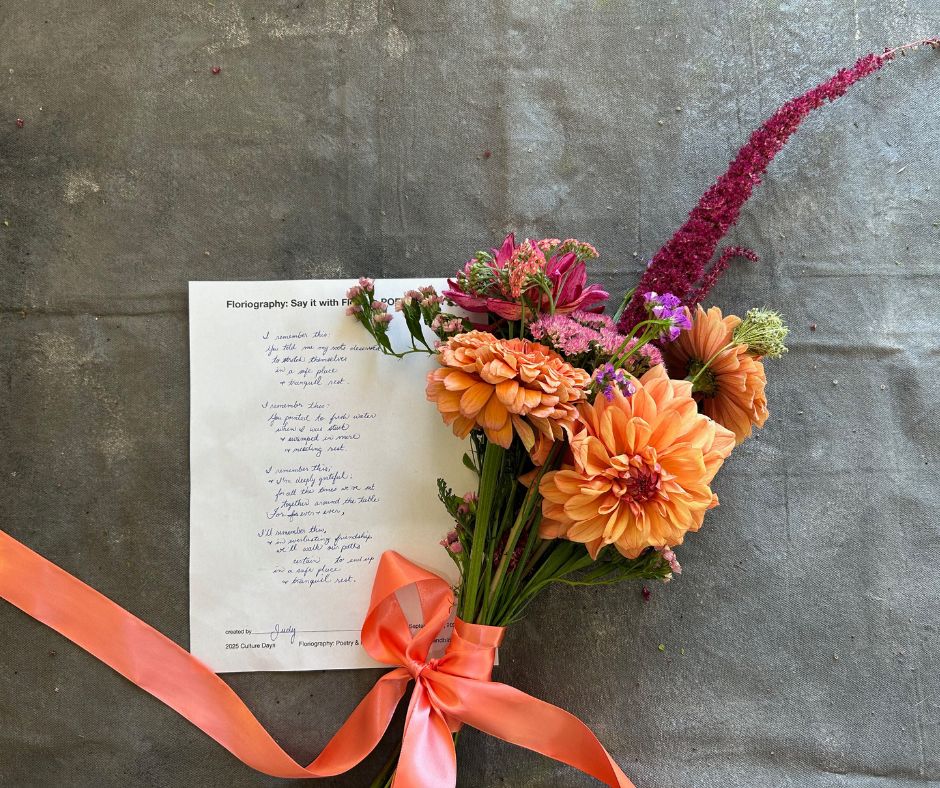 Floriography: Say it with Fl POE
I remember this:
You told me my roots deserved
to stretch themselves
in a safe place
+ tranquil rest.
I remember this:
You pointed to fresh water
when I was stuck
+ swamped in mire
+ needing rest.
I remember this;
+ I'm deeply grateful.
for all the times we've sat
together around the table
For forever + ever,
I'll remember this,
+ in everlasting friendship,
we'll walk our paths
certain to end up
in a safe place
+ tranquil rest.
created by Judy
Septem 202
2025 Culture Days Floriography: Poetry &